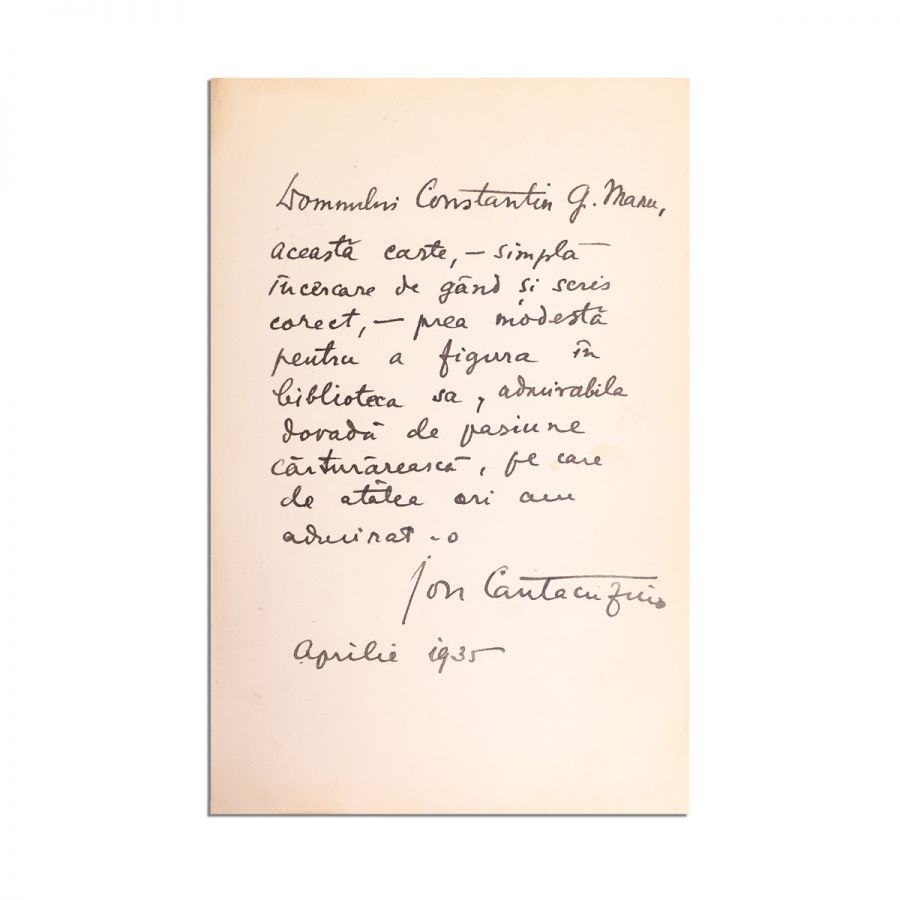 Domnului Constantin G. Manu,
această carte, – simplă
încercare de gând și scris
corect, – prea modestă
pentru a figura în
biblioteca sa, admirabila
dovadă de pasiune
cărturărească, pe care
de atâtea ori am
admirat-o
Ion Cantacuzino
Aprilie 1935